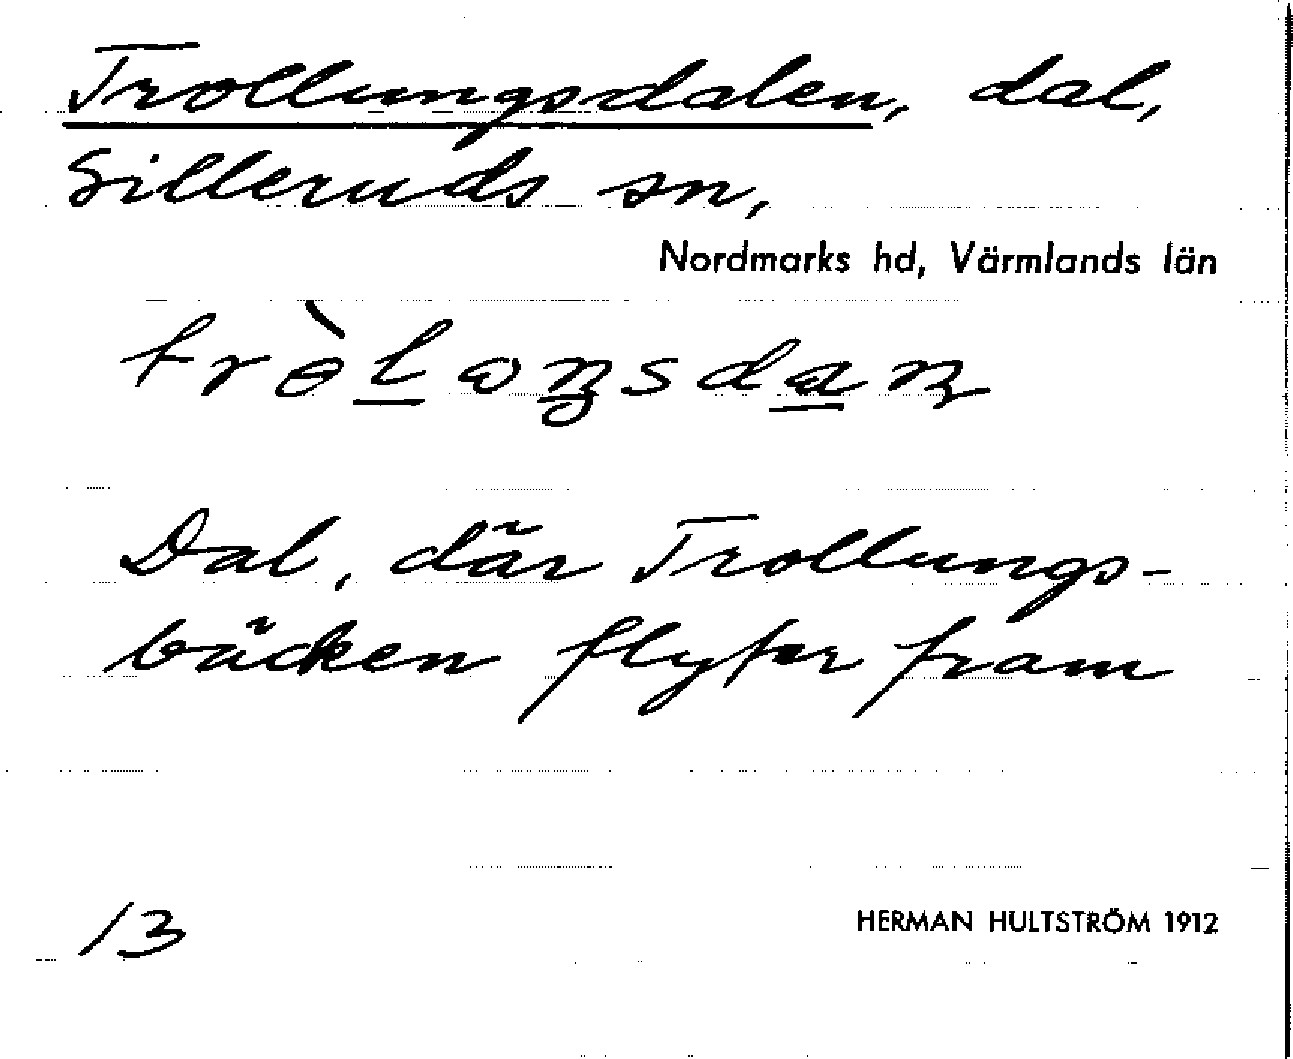 Trollungsdalen, dal,
Silleruds sn,
Nordmarks hd, Värmlands län
Dal, där Trollungs-
bäcken flyter fram
13
HERMAN HULTSTRÖM 1912